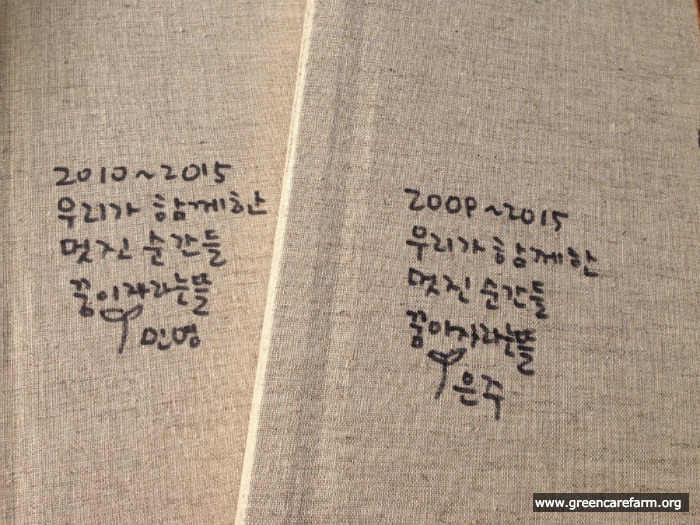 2010~2015
우리가 함께한
멋진 순간들
꿈이자라는뜰
민영
2009~2015
우리가 함께한
멋진 순간들
꿈이자라는뜰
은주
www.greencarefarm.org